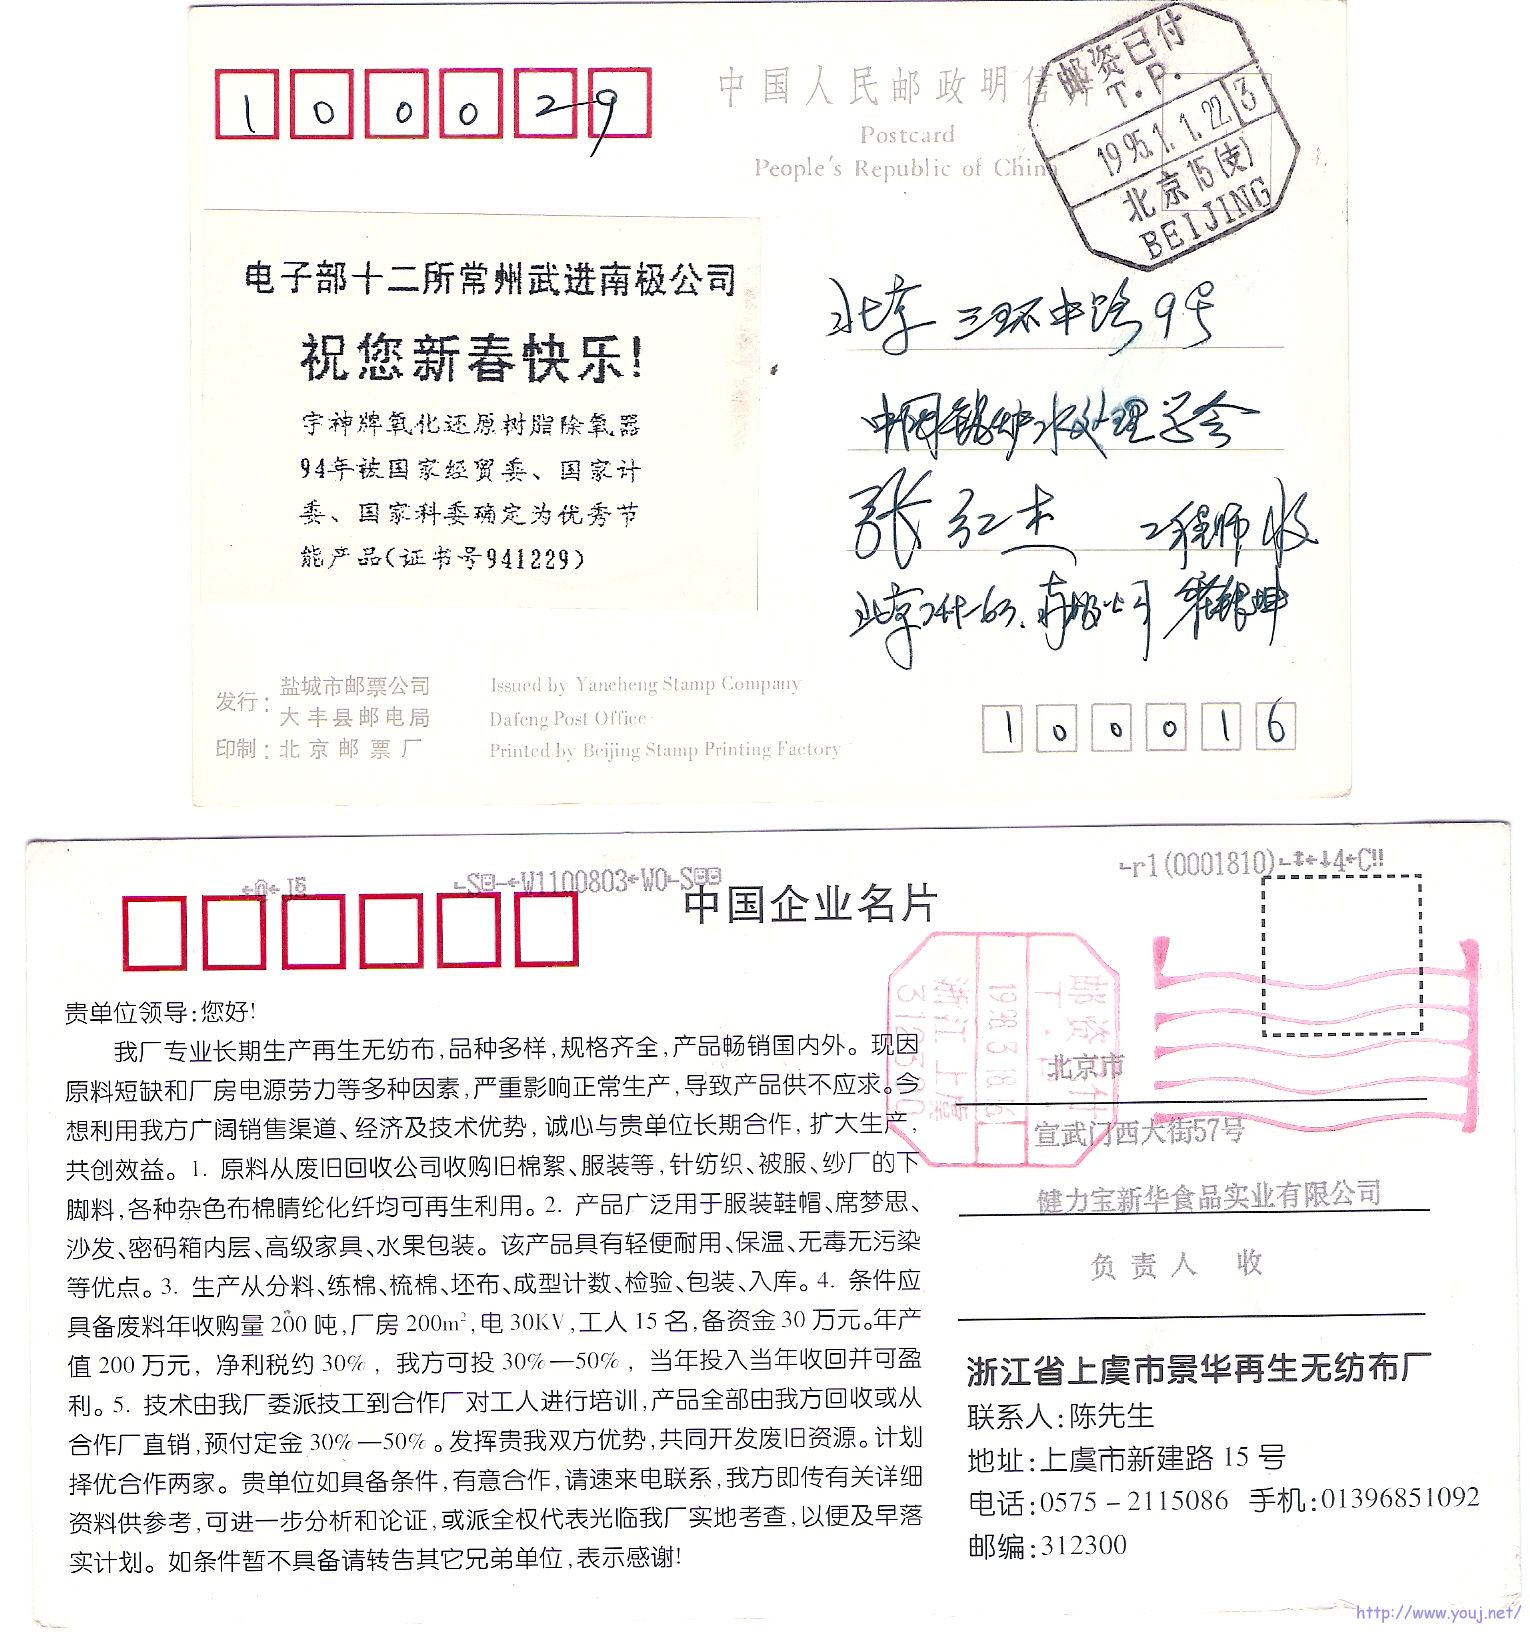 100029
中国人民邮政明信片
Postcard
People's Republic of China
邮资已付
T.P.
1995.1.22. 3
北京15(支)
BEIJING
电子部十二所常州武进南极公司
祝您新春快乐!
宇神牌氧化还原树脂除氧器
94年被国家经贸委、国家计
委、国家科委确定为优秀节
能产品(证书号941229)
北京 三环中路9号
中国锅炉水处理学会
张红杰 工程师 收
北京
100016
发行: 盐城市邮票公司
大丰县邮电局
印制: 北京邮票厂
Issued by Yancheng Stamp Company
Dafeng Post Office
Printed by Beijing Stamp Printing Factory
W1100803
r1(0001810)
中国企业名片
贵单位领导:您好!
我厂专业长期生产再生无纺布,品种多样,规格齐全,产品畅销国内外。现因
原料短缺和厂房电源劳力等多种因素,严重影响正常生产,导致产品供不应求。今
想利用我方广阔销售渠道、经济及技术优势,诚心与贵单位长期合作,扩大生产,
共创效益。1. 原料从废旧回收公司收购旧棉絮、服装等,针纺织、被服、纱厂的下
脚料,各种杂色布棉晴纶化纤均可再生利用。2. 产品广泛用于服装鞋帽、席梦思、
沙发、密码箱内层、高级家具、水果包装。该产品具有轻便耐用、保温、无毒无污染
等优点。3. 生产从分料、练棉、梳棉、坯布、成型计数、检验、包装、入库。4. 条件应
具备废料年收购量200吨,厂房200m²,电30KV,工人15名,备资金30万元。年产
值200万元,净利税约30%,我方可投30%—50%,当年投入当年收回并可盈
利。5. 技术由我厂委派技工到合作厂对工人进行培训,产品全部由我方回收或从
合作厂直销,预付定金30%—50%。发挥贵我双方优势,共同开发废旧资源。计划
择优合作两家。贵单位如具备条件,有意合作,请速来电联系,我方即传有关详细
资料供参考,可进一步分析和论证,或派全权代表光临我厂实地考查,以便及早落
实计划。如条件暂不具备请转告其它兄弟单位,表示感谢!
邮资已付
T.P.
1998.3.18.16
浙江上虞
312300
北京市
宣武门西大街57号
健力宝新华食品实业有限公司
负责人 收
浙江省上虞市景华再生无纺布厂
联系人:陈先生
地址:上虞市新建路15号
电话:0575-2115086 手机:01396851092
邮编:312300
http://www.youj.net/